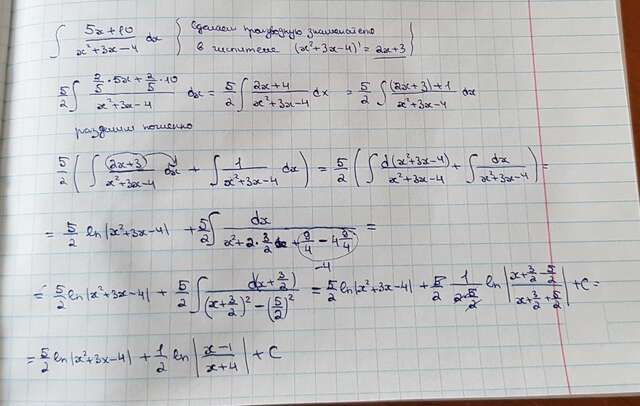 ∫ (5x+10)/(x²+3x-4) dx { Сделаем производную знаменателя
в числителе (x²+3x-4)' = 2x+3 }
5/2 ∫ (2/5·5x + 2/5·10)/(x²+3x-4) dx = 5/2 ∫ (2x+4)/(x²+3x-4) dx = 5/2 ∫ ((2x+3)+1)/(x²+3x-4) dx
разделим почленно
5/2 ( ∫ (2x+3)/(x²+3x-4) dx + ∫ 1/(x²+3x-4) dx ) = 5/2 ( ∫ d(x²+3x-4)/(x²+3x-4) + ∫ dx/(x²+3x-4) ) =
= 5/2 ln|x²+3x-4| + 5/2 ∫ dx/(x²+2·3/2 x + 9/4 - 4 9/4) =
-4
= 5/2 ln|x²+3x-4| + 5/2 ∫ d(x+3/2)/((x+3/2)²-(5/2)²) = 5/2 ln|x²+3x-4| + 5/2 · 1/(2·5/2) ln|(x+3/2-5/2)/(x+3/2+5/2)| + C =
= 5/2 ln|x²+3x-4| + 1/2 ln|(x-1)/(x+4)| + C